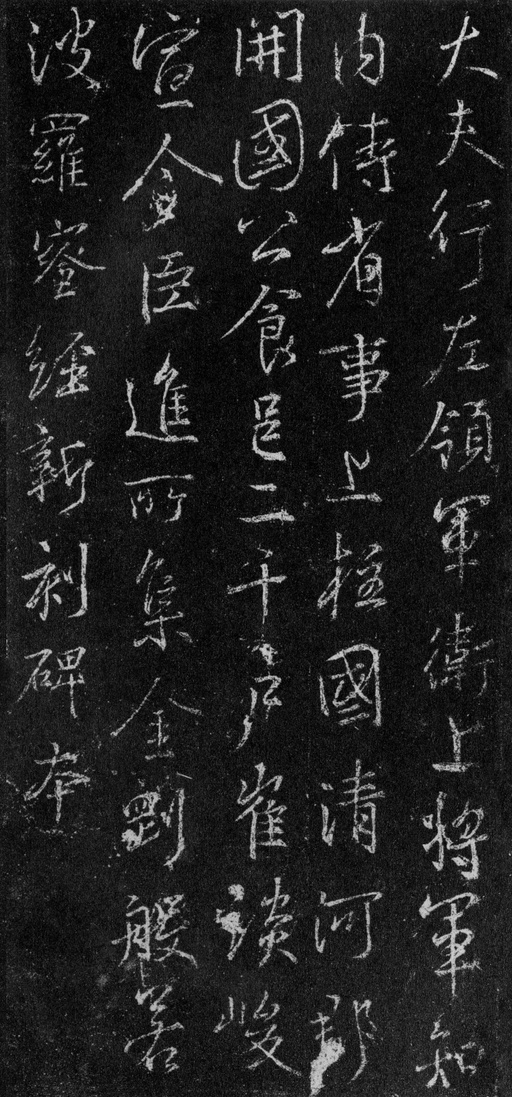 大夫行左領軍衛上將軍知
内侍省事上柱國清河郡
開國公食邑二千户崔談峻
宣奉臣進所集金剛般若
波羅蜜經新刻碑本